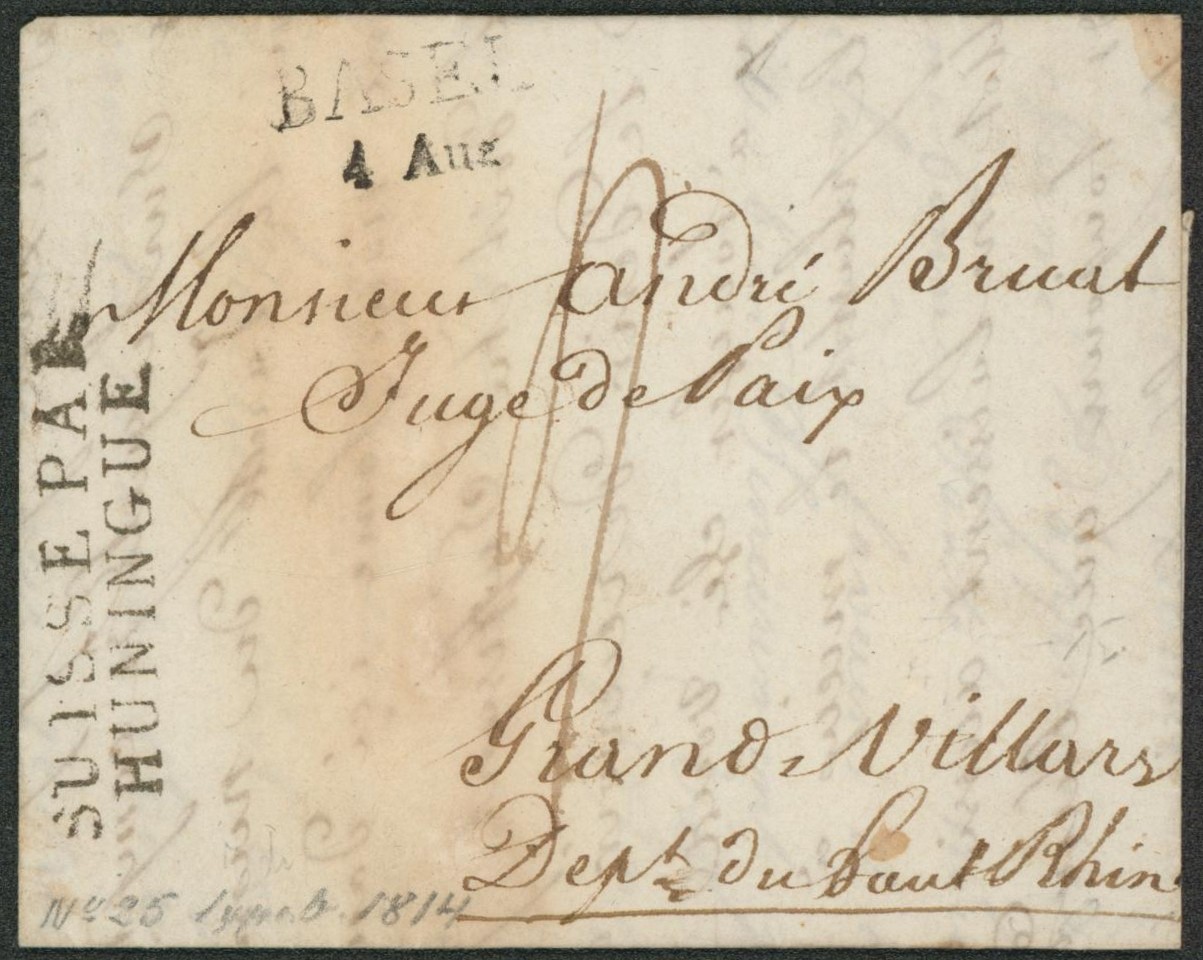 BASEL
4 Aug
Monsieur André Bruat
Juge de Paix
Grand-Villars
Dept. du haut Rhin.
SUISSE PAR
HUNINGUE
No 25 1814